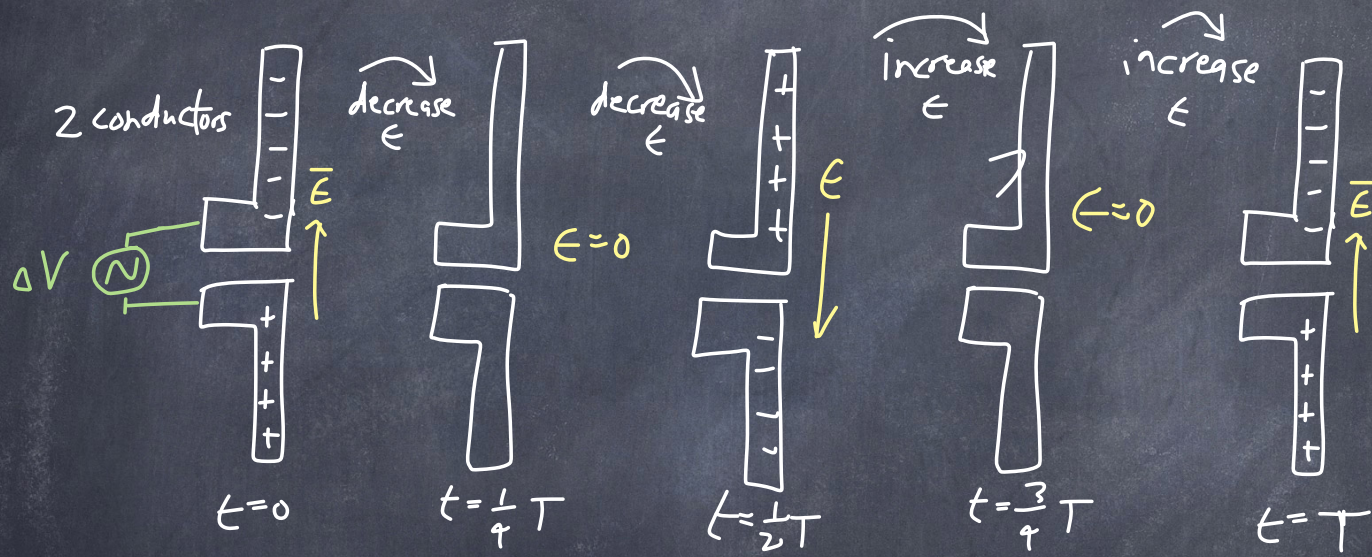 2 conductors
ΔV
Ē
t=0
decrease
ϵ
ϵ=0
t=1/4 T
decrease
ϵ
+
+
+
+
ϵ
-
-
-
-
t=1/2 T
increase
ϵ
ϵ=0
t=3/4 T
increase
ϵ
Ē
t=T